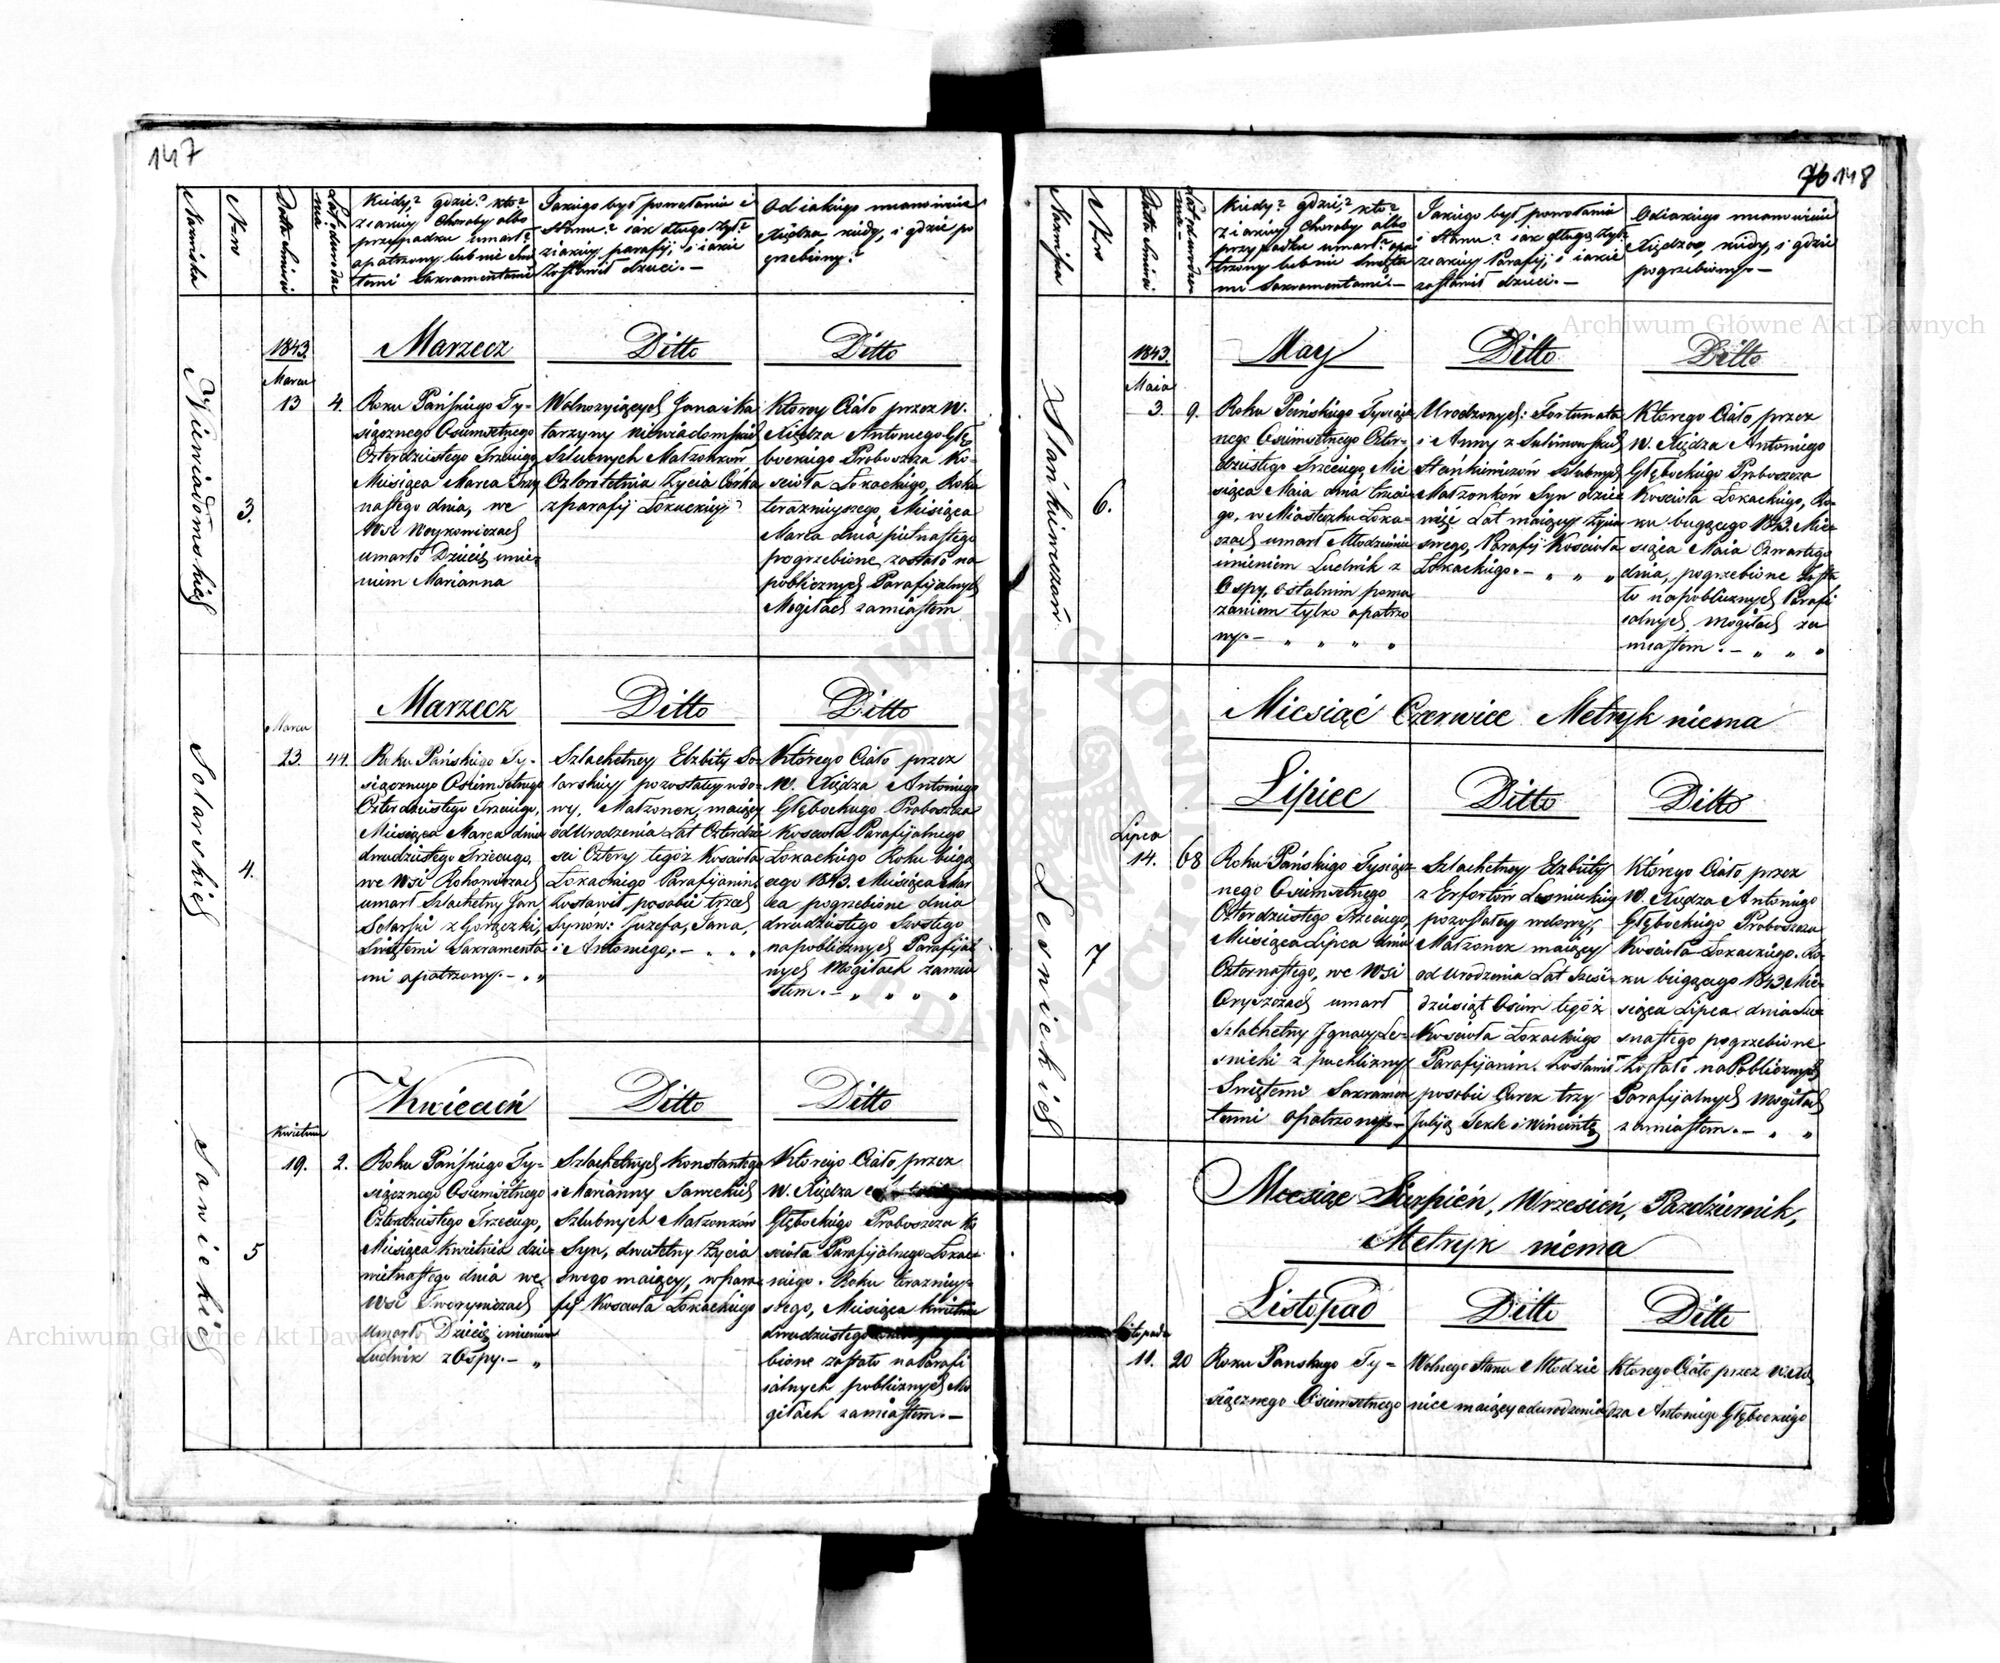 147
Nazwiska
Nrw
Data śmierci
Kiedy? gdzie? kto?
z iakiey Choroby albo
przypadku umarł?
opatrzony lub nie Świę
temi Sakramentami
Jakiego był powołania i
Stanu? iak długo żył?
z iakiey parafij, i iakie
zostawił dzieci.—
Od iakiego mianowicie
Xiędza kiedy, i gdzie po
grzebiony?
1843
Marzecz
Ditto
Ditto
Niewiadomskich
3.
Marca
13
4.
Roku Pańskiego Ty-
siącznego Osiemsetnego
Czterdziestego Trzeciego
Miesiąca Marca Trzy
nastego dnia, we
Wsi Woykowiczach
umarło Dziecię imie-
niem Marianna
Wolnożyiących Jana i Ka
tarzyny Niewiadomskich
Szlubnych Małżonków
Czteroletnia Życia Córka
z parafij Łokackiey
Którey Ciało przez W.
Xiędza Antoniego Głę
bockiego Proboszcza Ko-
ścioła Łokackiego, Roku
teraznieyszego, Miesiąca
Marca dnia piętnastego
pogrzebione zostało na
publicznych Parafijalnych
Mogiłach za miastem
Marzecz
Ditto
Ditto
Solarskich
4.
Marca
23.
44.
Roku Pańskiego Ty-
siącznego Osiemsetnego
Czterdziestego Trzeciego,
Miesiąca Marca dnia
dwudziestego Trzeciego,
we Wsi Rokowiczach
umarł Szlachetny Jan
Solarski z Gorączki,
Świętemi Sakramenta
mi opatrzony.— "
Szlachetney Elżbity So-
larskiey pozostałey wdo-
wy, Małżonek, maiący
od Urodzenia Lat Czterdzie
ści Cztery tegóż Kościoła
Łokackiego Parafijanin
Zostawił posobie trzech
Synów: Juzefa, Jana,
i Antoniego.— " " "
Którego Ciało przez
W. Xiędza Antoniego
Głębockiego Proboszcza
Kościoła Parafijalnego
Łokackiego Roku bieżą
cego 1843. Miesiąca Mar
ca pogrzebione dnia
dwudziestego Szóstego
na poblicznych Parafijal
nych Mogiłach zamia
stem.— " " " "
Kwiecień
Ditto
Ditto
Sawickich
5
Kwietnia
19.
2.
Roku Pańskiego Ty-
siącznego Osiemsetnego
Czterdziestego Trzeciego,
Miesiąca Kwietnia dzie-
wietnastego dnia we
Wsi Tworymiczach
Umarło Dziecię imieniem
Ludwik z Ospy.— "
Szlachetnych Konstantego
i Marianny Sawickich
Szlubnych Małżonków
Syn, dwuletny Życia
swego maiący, w para
fij Kościoła Łokackiego
Którego Ciało przez
W. Xiędza
Głębockiego Proboszcza Ko
ścioła Parafijalnego Łokac-
kiego. Roku teraznieyszego
Miesiąca Kwietnia
dwudziestego
bione zostało na Parafi
ialnych poblicznych Mo
giłach zamiastem.—
76 148
Nazwiska
Nrw
Data śmierci
Kiedy? gdzie? kto?
z iakiey Choroby albo
przypadku umarł? opa
trzony lub nie Święte
mi Sakramentami.—
Jakiego był powołania
i Stanu? iak długo żył?
z iakiey Parafij, i iakie
zostawił dzieci.—
Od iakiego mianowicie
Xiędza, kiedy, i gdzie
pogrzebiony.—
1843.
May
Ditto
Ditto
Stańkiewiczów
6.
Maia
3.
9.
Roku Pańskiego Tysiącz
nego Osiemsetnego Czter-
dziestego Trzeciego Mie
siąca Maia dnia trzecie
go, w Miasteczku Łoka-
czach umarł Młodzieniec
imieniem Ludwik z
Ospy, ostatnim poma
zaniem tylko opatrzo
ny.— " " " "
Urodzonych: Fortunata
i Anny z Sulimowskich
Stańkiewiczów Szlubnych
Małżonków Syn dzie
więć Lat maiący Życia
swego, Parafij Kościoła
Łokackiego.— " " "
Którego Ciało przez
W. Xiędza Antoniego
Głębockiego Proboszcza
Kościoła Łokackiego, Ro-
ku bieżącego 1843. Mie-
siąca Maia Czwartego
dnia, pogrzebione Zosta
ło na poblicznych Parafi
ialnych Mogiłach za
miastem.— " " "
Miesiąć Czerwiec Metryk niema
Lipiec
Ditto
Ditto
Lesnickich
7
Lipca
14.
68
Roku Pańskiego Tysiącz
nego Osiemsetnego
Czterdziestego Trzeciego,
Miesiąca Lipca dnia
Czternastego, we Wsi
Oryszczach umarł
Szlachetny Ignacy Le-
snicki z puchliny
Świętemi Sakramen
tami opatrzony.—
Szlachetney Elżbity
z Erfortów Lesnickiey
pozostałey wdowy,
Małżonek maiący
od Urodzenia Lat Sześć-
dziesiąt Osiem tegóż
Kościoła Łokackiego
Parafijanin. Zostawił
posobie Curek trzy
Juliją Teklę i Wincentę
Którego Ciało przez
W. Xiędza Antoniego
Głębockiego Proboszcza
Kościoła Łokackiego. Ro-
ku bieżącego 1843 Mie-
siąca Lipca dnia Sze-
snastego pogrzebione
Zostało na Poblicznych
Parafijalnych Mogiłach
zamiastem.— " "
Miesiąc Sierpień, Wrzesień, Pazdziernik,
Metryk niema
Listopad
Ditto
Ditto
Listopada
11.
20
Roku Panskiego Ty-
siącznego Osiemsetnego
Wolnego Stanu Młodzie
niec maiący od urodzenia
Którego Ciało przez W. Xię
dza Antoniego Głębockiego
Archiwum Główne Akt Dawnych
Archiwum Główne Akt Dawnych